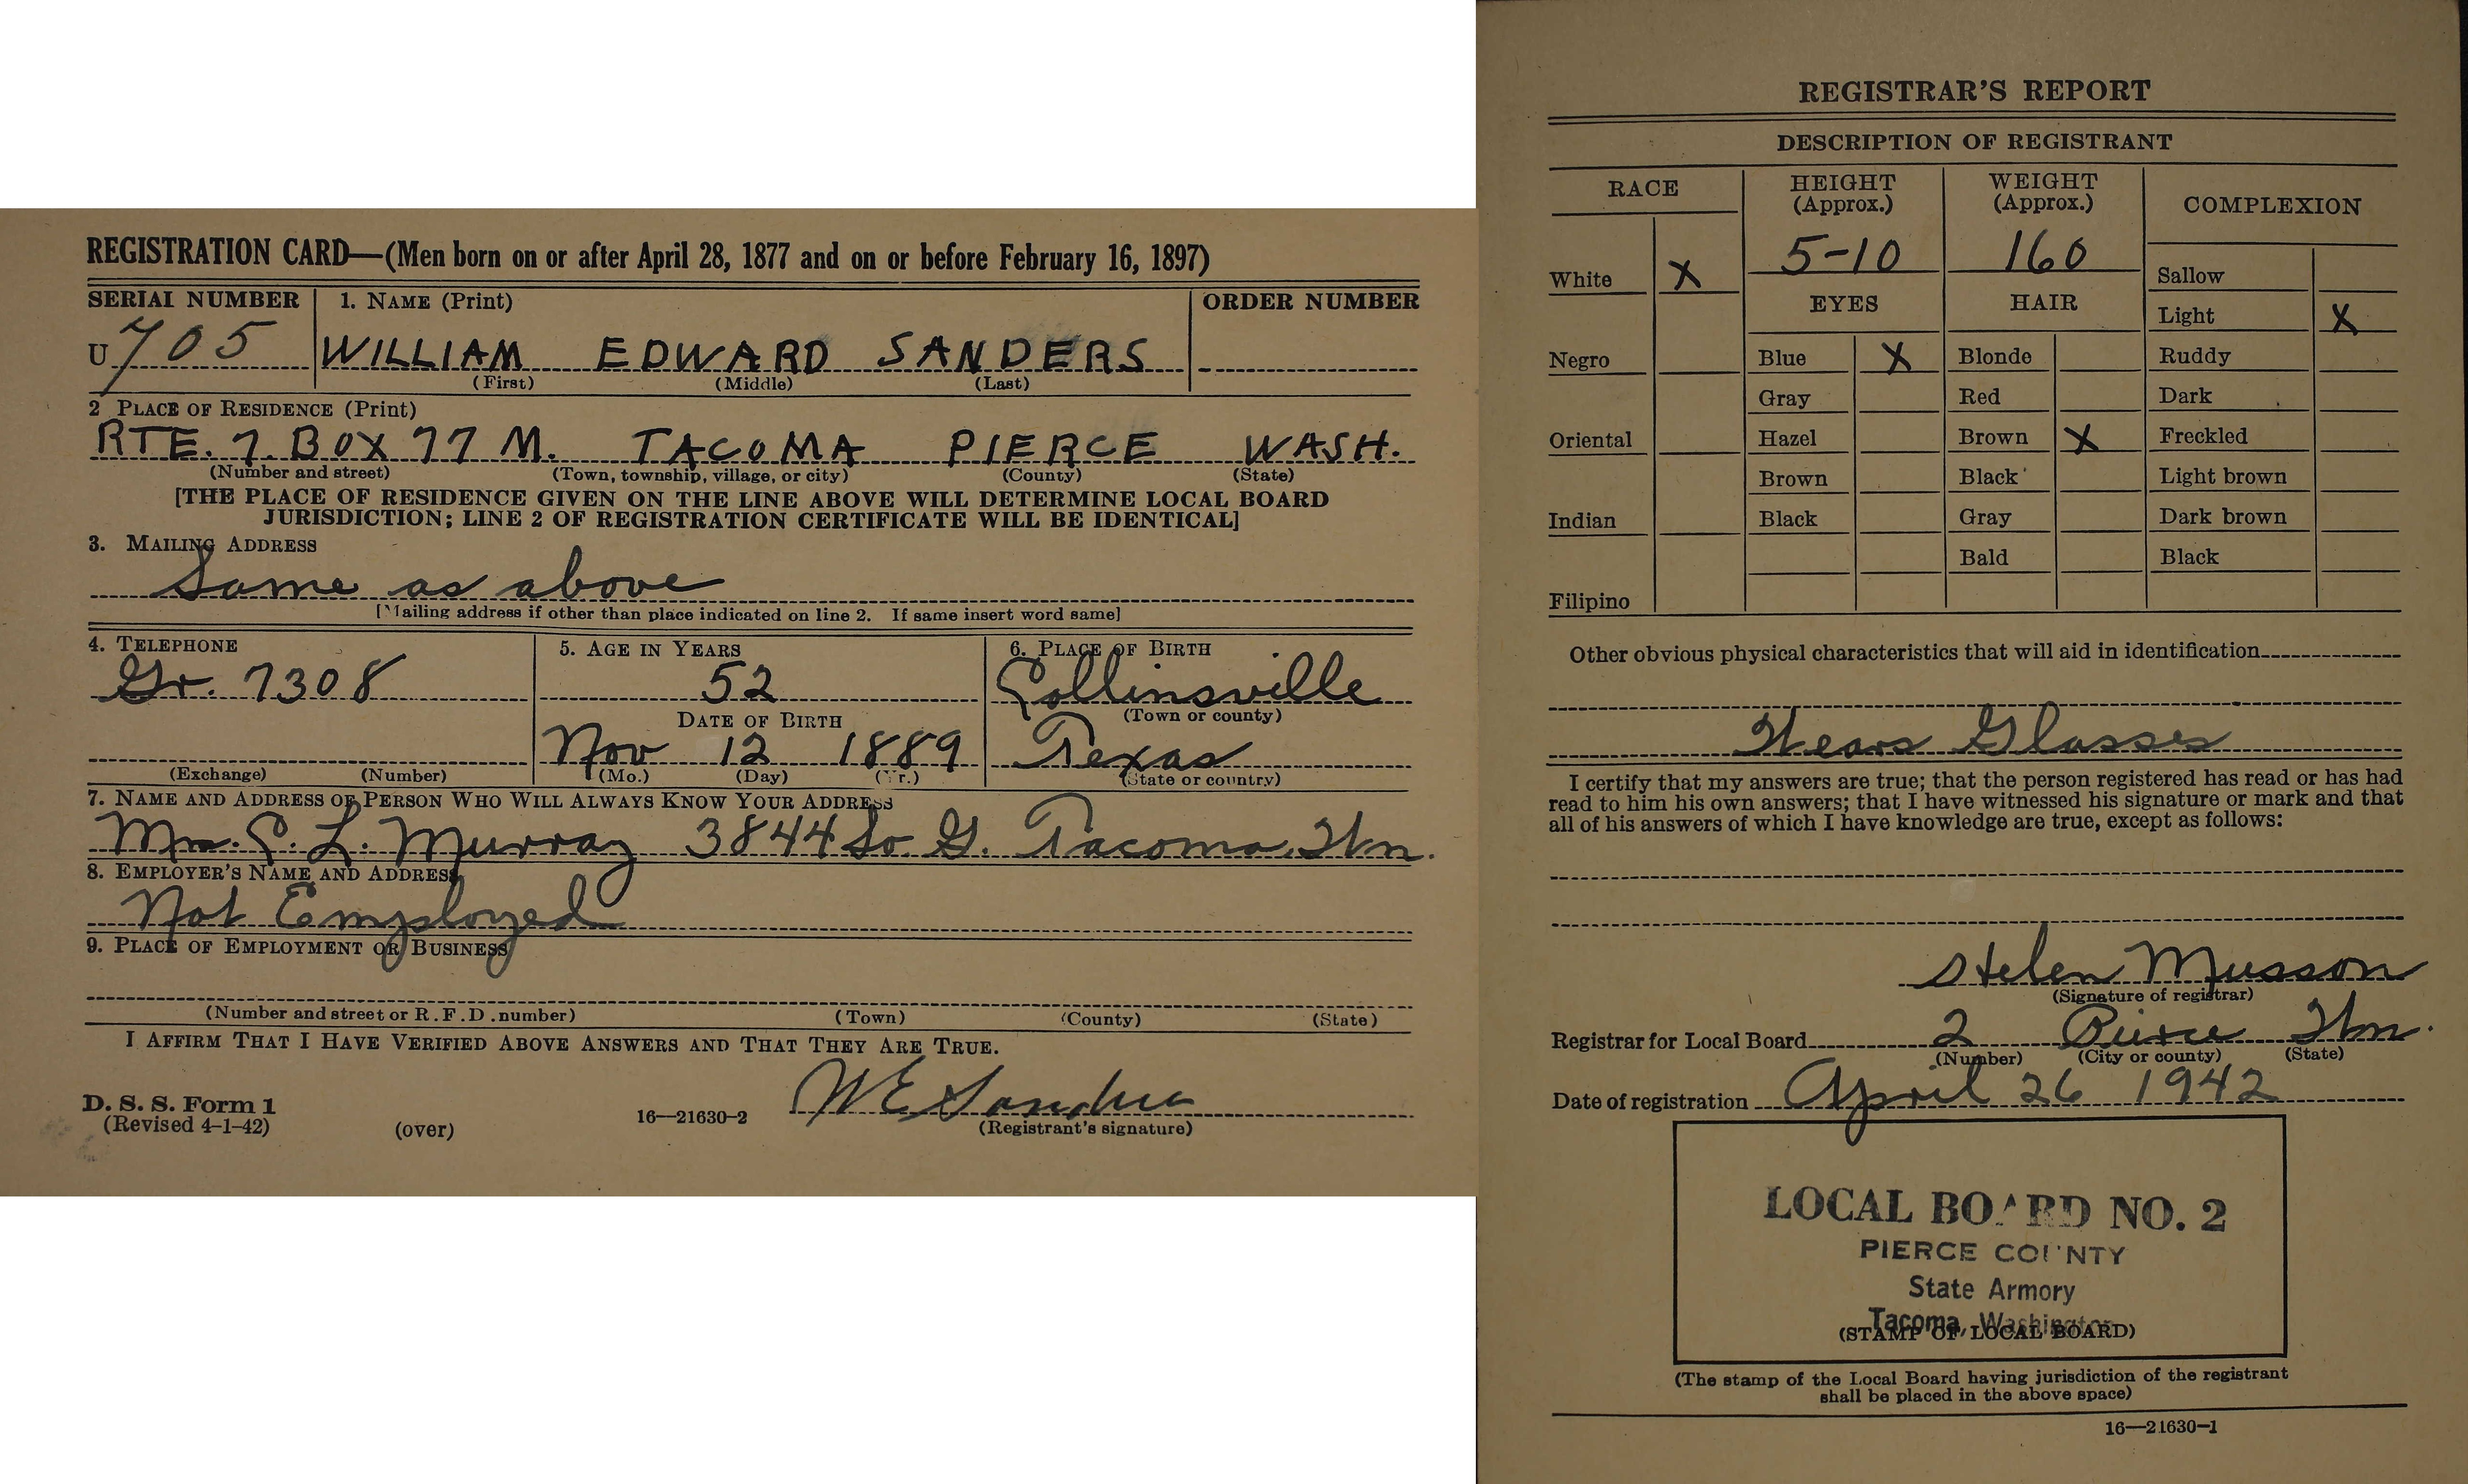 REGISTRATION CARD—(Men born on or after April 28, 1877 and on or before February 16, 1897)
SERIAL NUMBER 1. NAME (Print) ORDER NUMBER
U 705 WILLIAM EDWARD SANDERS
(First) (Middle) (Last)
2 PLACE OF RESIDENCE (Print)
RTE. 7. BOX 77 M. TACOMA PIERCE WASH.
(Number and street) (Town, township, village, or city) (County) (State)
[THE PLACE OF RESIDENCE GIVEN ON THE LINE ABOVE WILL DETERMINE LOCAL BOARD
JURISDICTION; LINE 2 OF REGISTRATION CERTIFICATE WILL BE IDENTICAL]
3. MAILING ADDRESS
Same as above
[Mailing address if other than place indicated on line 2. If same insert word same]
4. TELEPHONE 5. AGE IN YEARS 6. PLACE OF BIRTH
Gr. 7308 52 Collinsville
DATE OF BIRTH (Town or county)
Nov 12 1889 Texas
(Exchange) (Number) (Mo.) (Day) (Yr.) (State or country)
7. NAME AND ADDRESS OF PERSON WHO WILL ALWAYS KNOW YOUR ADDRESS
Mrs. C. L. Murray 3844 So. G. Tacoma, Wn.
8. EMPLOYER'S NAME AND ADDRESS
Not Employed
9. PLACE OF EMPLOYMENT OR BUSINESS
(Number and street or R.F.D. number) (Town) (County) (State)
I AFFIRM THAT I HAVE VERIFIED ABOVE ANSWERS AND THAT THEY ARE TRUE.
W E Sanders
D. S. S. Form 1
(Revised 4-1-42) (over) 16—21630-2 (Registrant's signature)
REGISTRAR'S REPORT
DESCRIPTION OF REGISTRANT
RACE HEIGHT (Approx.) WEIGHT (Approx.) COMPLEXION
5-10 160
White X Sallow
EYES HAIR
Light X
Negro Blue X Blonde Ruddy
Gray Red Dark
Oriental Hazel Brown X Freckled
Brown Black Light brown
Indian Black Gray Dark brown
Bald Black
Filipino
Other obvious physical characteristics that will aid in identification
Wears Glasses
I certify that my answers are true; that the person registered has read or has had
read to him his own answers; that I have witnessed his signature or mark and that
all of his answers of which I have knowledge are true, except as follows:
Helen Musson
(Signature of registrar)
Registrar for Local Board 2 Pierce Wn.
(Number) (City or county) (State)
Date of registration April 26 1942
LOCAL BOARD NO. 2
PIERCE COUNTY
State Armory
Tacoma, Washington
(STAMP OF LOCAL BOARD)
(The stamp of the Local Board having jurisdiction of the registrant
shall be placed in the above space)
16—21630-1